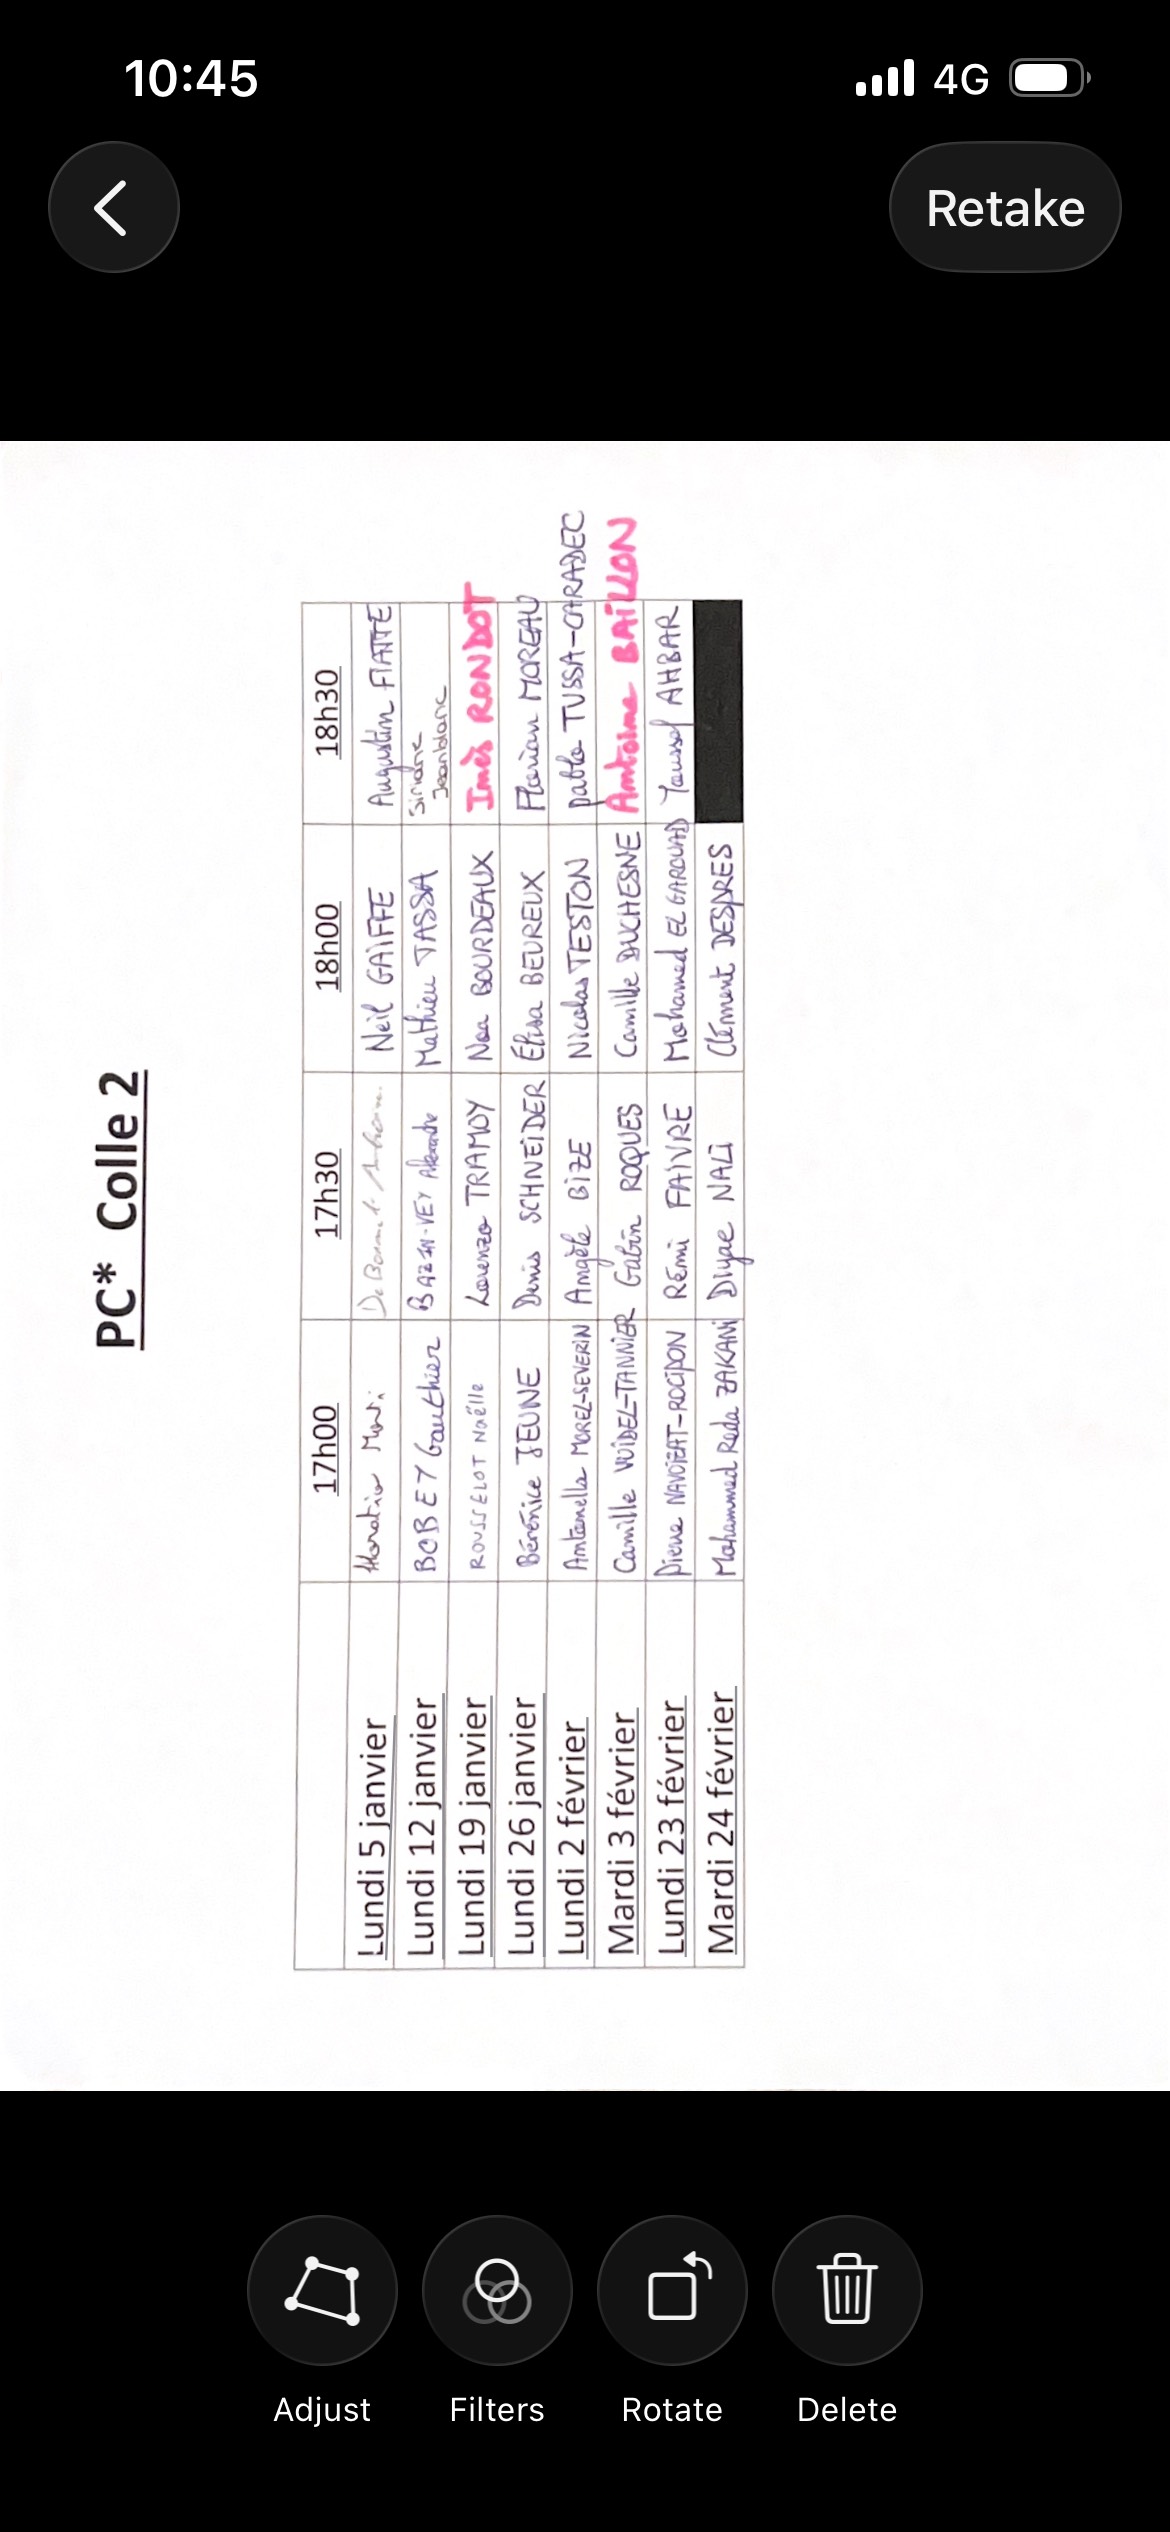 10:45
4G
Retake
PC* Colle 2
17h00 17h30 18h00 18h30
Lundi 5 janvier Horatiu Neil GAIFFE Augustin FIATTE
Lundi 12 janvier BOBEY Gauthier BAZIN-VEY Alexandre Mathieu TASSA Siriane Jeanblanc
Lundi 19 janvier ROUSSELOT Naëlle Lorenzo TRAMOY Noa BOURDEAUX Inès RONDOT
Lundi 26 janvier Bérénice JEUNE Denis SCHNEIDER Élisa BEUREUX Florian MOREAU
Lundi 2 février Antonella MOREL-SEVERIN Angèle BIZE Nicolas TESTON pablo TUSSA-CARADEC
Mardi 3 février Camille VUIDEL-TANNIER Gabin ROQUES Camille DUCHESNE Antoine BAILLON
Lundi 23 février Pierre Rémi FAIVRE Mohamed EL GAROUAD Youssef AHBAR
Mardi 24 février Mohammed Reda ZAKANI Diyae NALI Clément DESPRES
Adjust Filters Rotate Delete